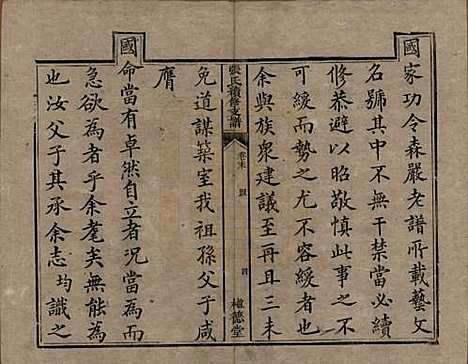 國家功令森嚴老譜所載藝文
名號其中不無干禁當必續
修恭避以昭敬慎此事之不
可緩而勢之尤不容緩者也
余與族衆建議至再且三未
張氏續修支譜
卷末
四
樟德堂
免道謀築室我祖孫父子咸
膺
國命當有卓然自立者況當為而
急欲為者乎余耄矣無能為
也汝父子其承余志均識之